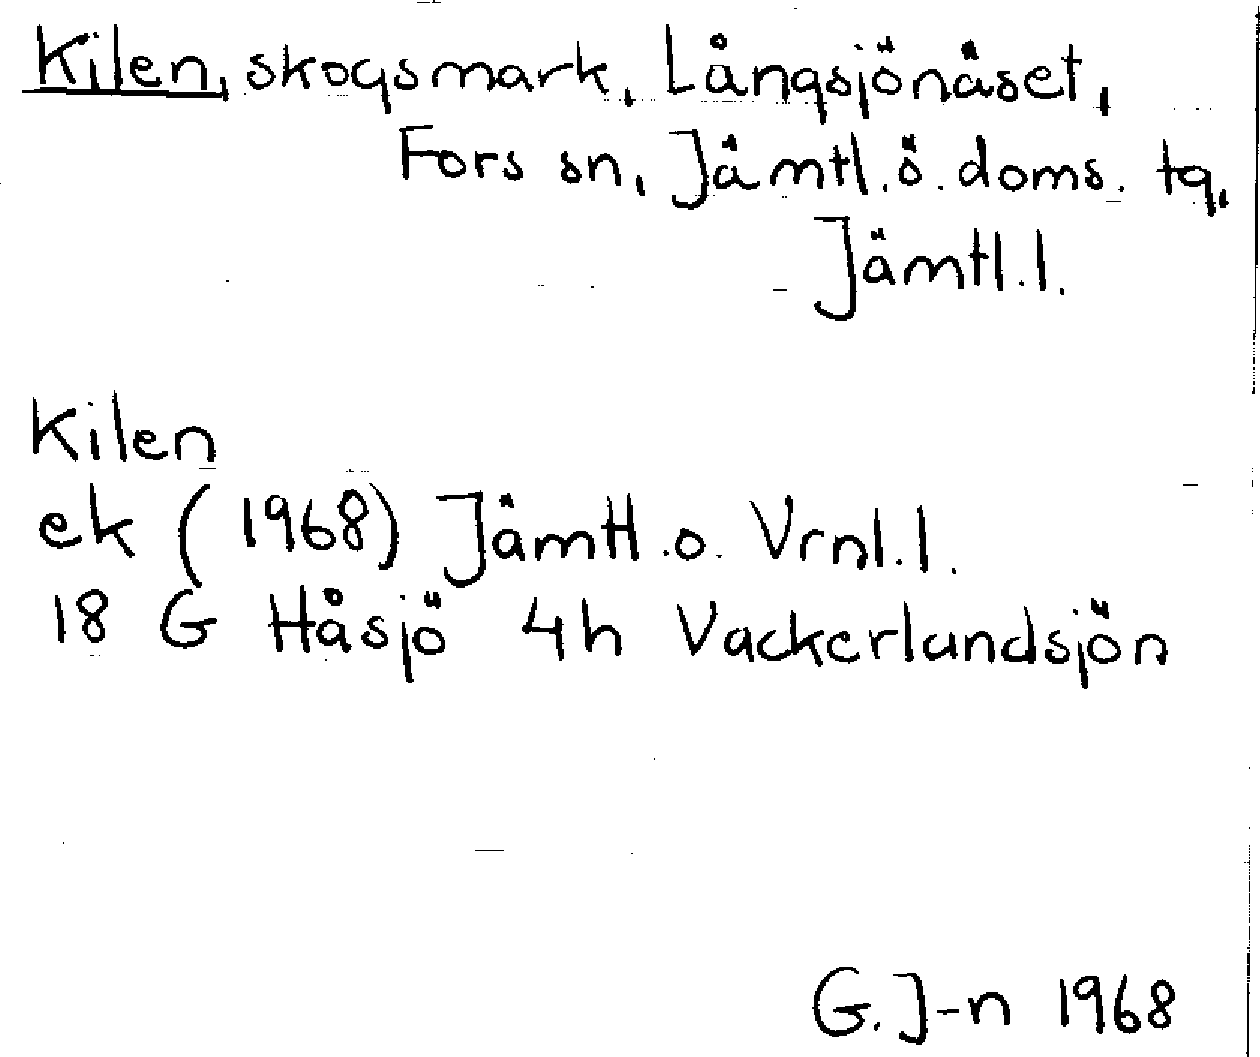 Kilen, skogsmark, Långsjönäset,
Fors sn, Jämtl. ö. doms. tg,
Jämtl. l.
Kilen
ek (1968) Jämtl. o. Vrnl. l.
18 G Håsjö 4h Vackerlandsjön
G. J-n 1968